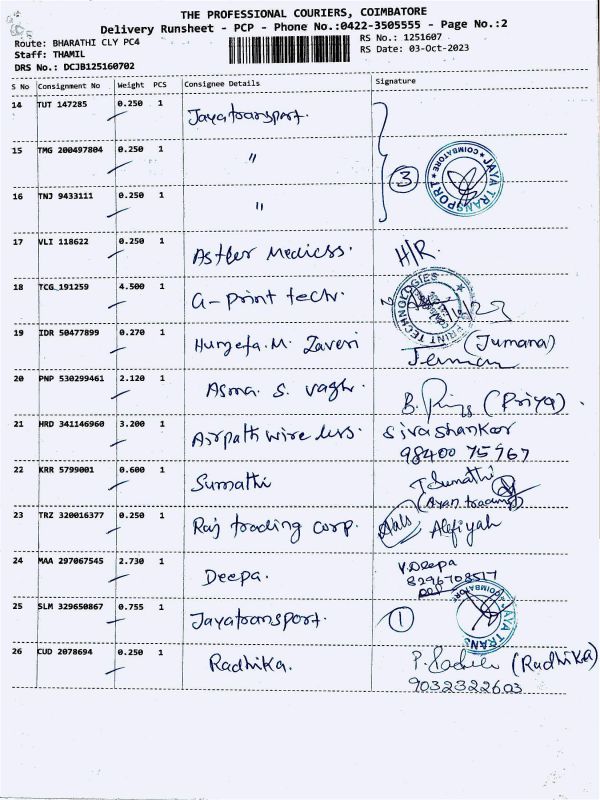 THE PROFESSIONAL COURIERS, COIMBATORE
Delivery Runsheet - PCP - Phone No.:0422-3505555 - Page No.:2
Route: BHARATHI CLY PC4
RS No.: 1251607
Staff: THAMIL
RS Date: 03-Oct-2023
DRS No.: DCJB125160702
S No Consignment No Weight PCS Consignee Details Signature
14 TUT 147285 0.250 1 Jayatransport.
15 TMG 200497804 0.250 1 "
3 JAYA TRANSPORT COIMBATORE
16 TNJ 9433111 0.250 1 "
17 VLI 118622 0.250 1 Aster Medicss. H/R.
18 TCG 191259 4.500 1 a-print tech. PRINT TECHNOLOGIES
19 IDR 50477899 0.270 1 Huzefa. M. Zaveri (Jumana)
20 PNP 530299461 2.120 1 Asma. S. vagh. B. (Priya).
21 HRD 341146960 3.200 1 Airpath wire less. sivashankar
98400 75967
22 KRR 5799001 0.600 1 Sumathi T. Sumathi
(Ayan trading)
23 TRZ 320016377 0.250 1 Raj trading corp. Alefiyah
24 MAA 297067545 2.730 1 Deepa. V. Deepa
8296708517
25 SLM 329650867 0.755 1 Jayatransport. 1 JAYA TRANS COIMBATORE
26 CUD 2078694 0.250 1 Radhika. (Radhika)
9032322603